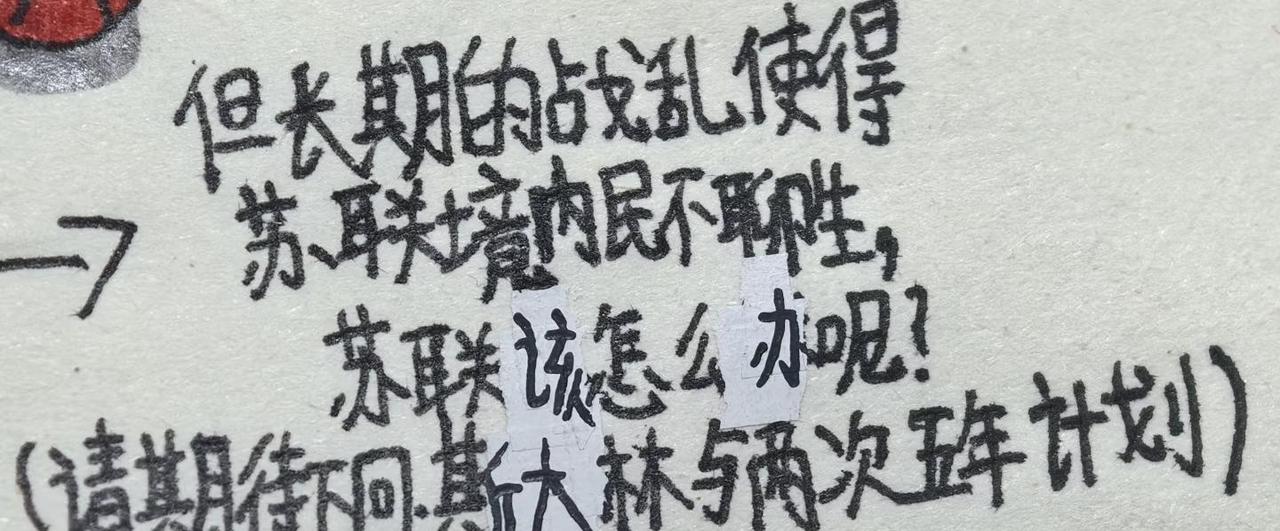 但长期的战乱使得
苏联境内民不聊生,
苏联该怎么办呢?
(请期待下回.斯大林与两次五年计划)